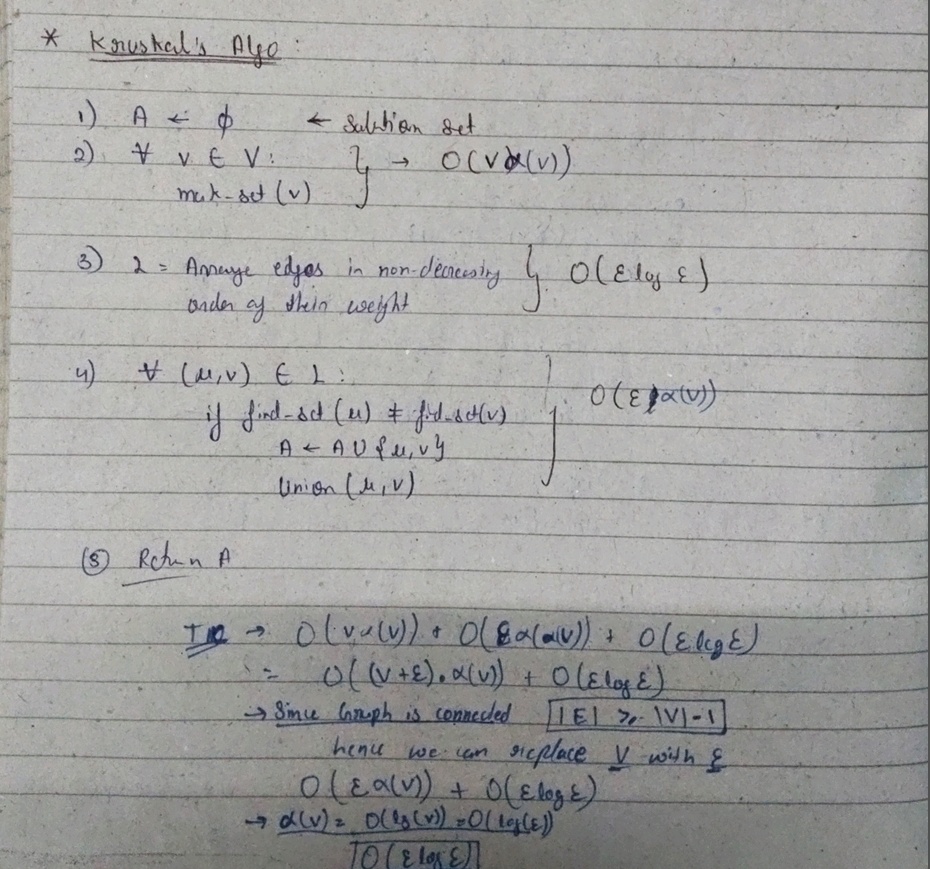 * Kruskal's Algo :
1) A ← ϕ ← Solution set
2) ∀ v ∈ V : } → O(Vα(V))
mak-set (v)
3) L = Arrange edges in non-decreasing } O(E log E)
order of their weight
4) ∀ (u,v) ∈ L : } O(E α(V))
if find-set (u) ≠ find-set(v)
A ← A ∪ {u,v}
Union (u,v)
(5) Return A
→ O(Vα(V)) + O(Eα(α(V)) + O(E log E)
= O((V+E).α(V)) + O(E log E)
→ Since Graph is connected |E| ≥ |V|-1
hence we can replace V with E
O(E α(V)) + O(E log E)
→ α(V) = O(lg(V)) = O(log(E))
O(E log E)